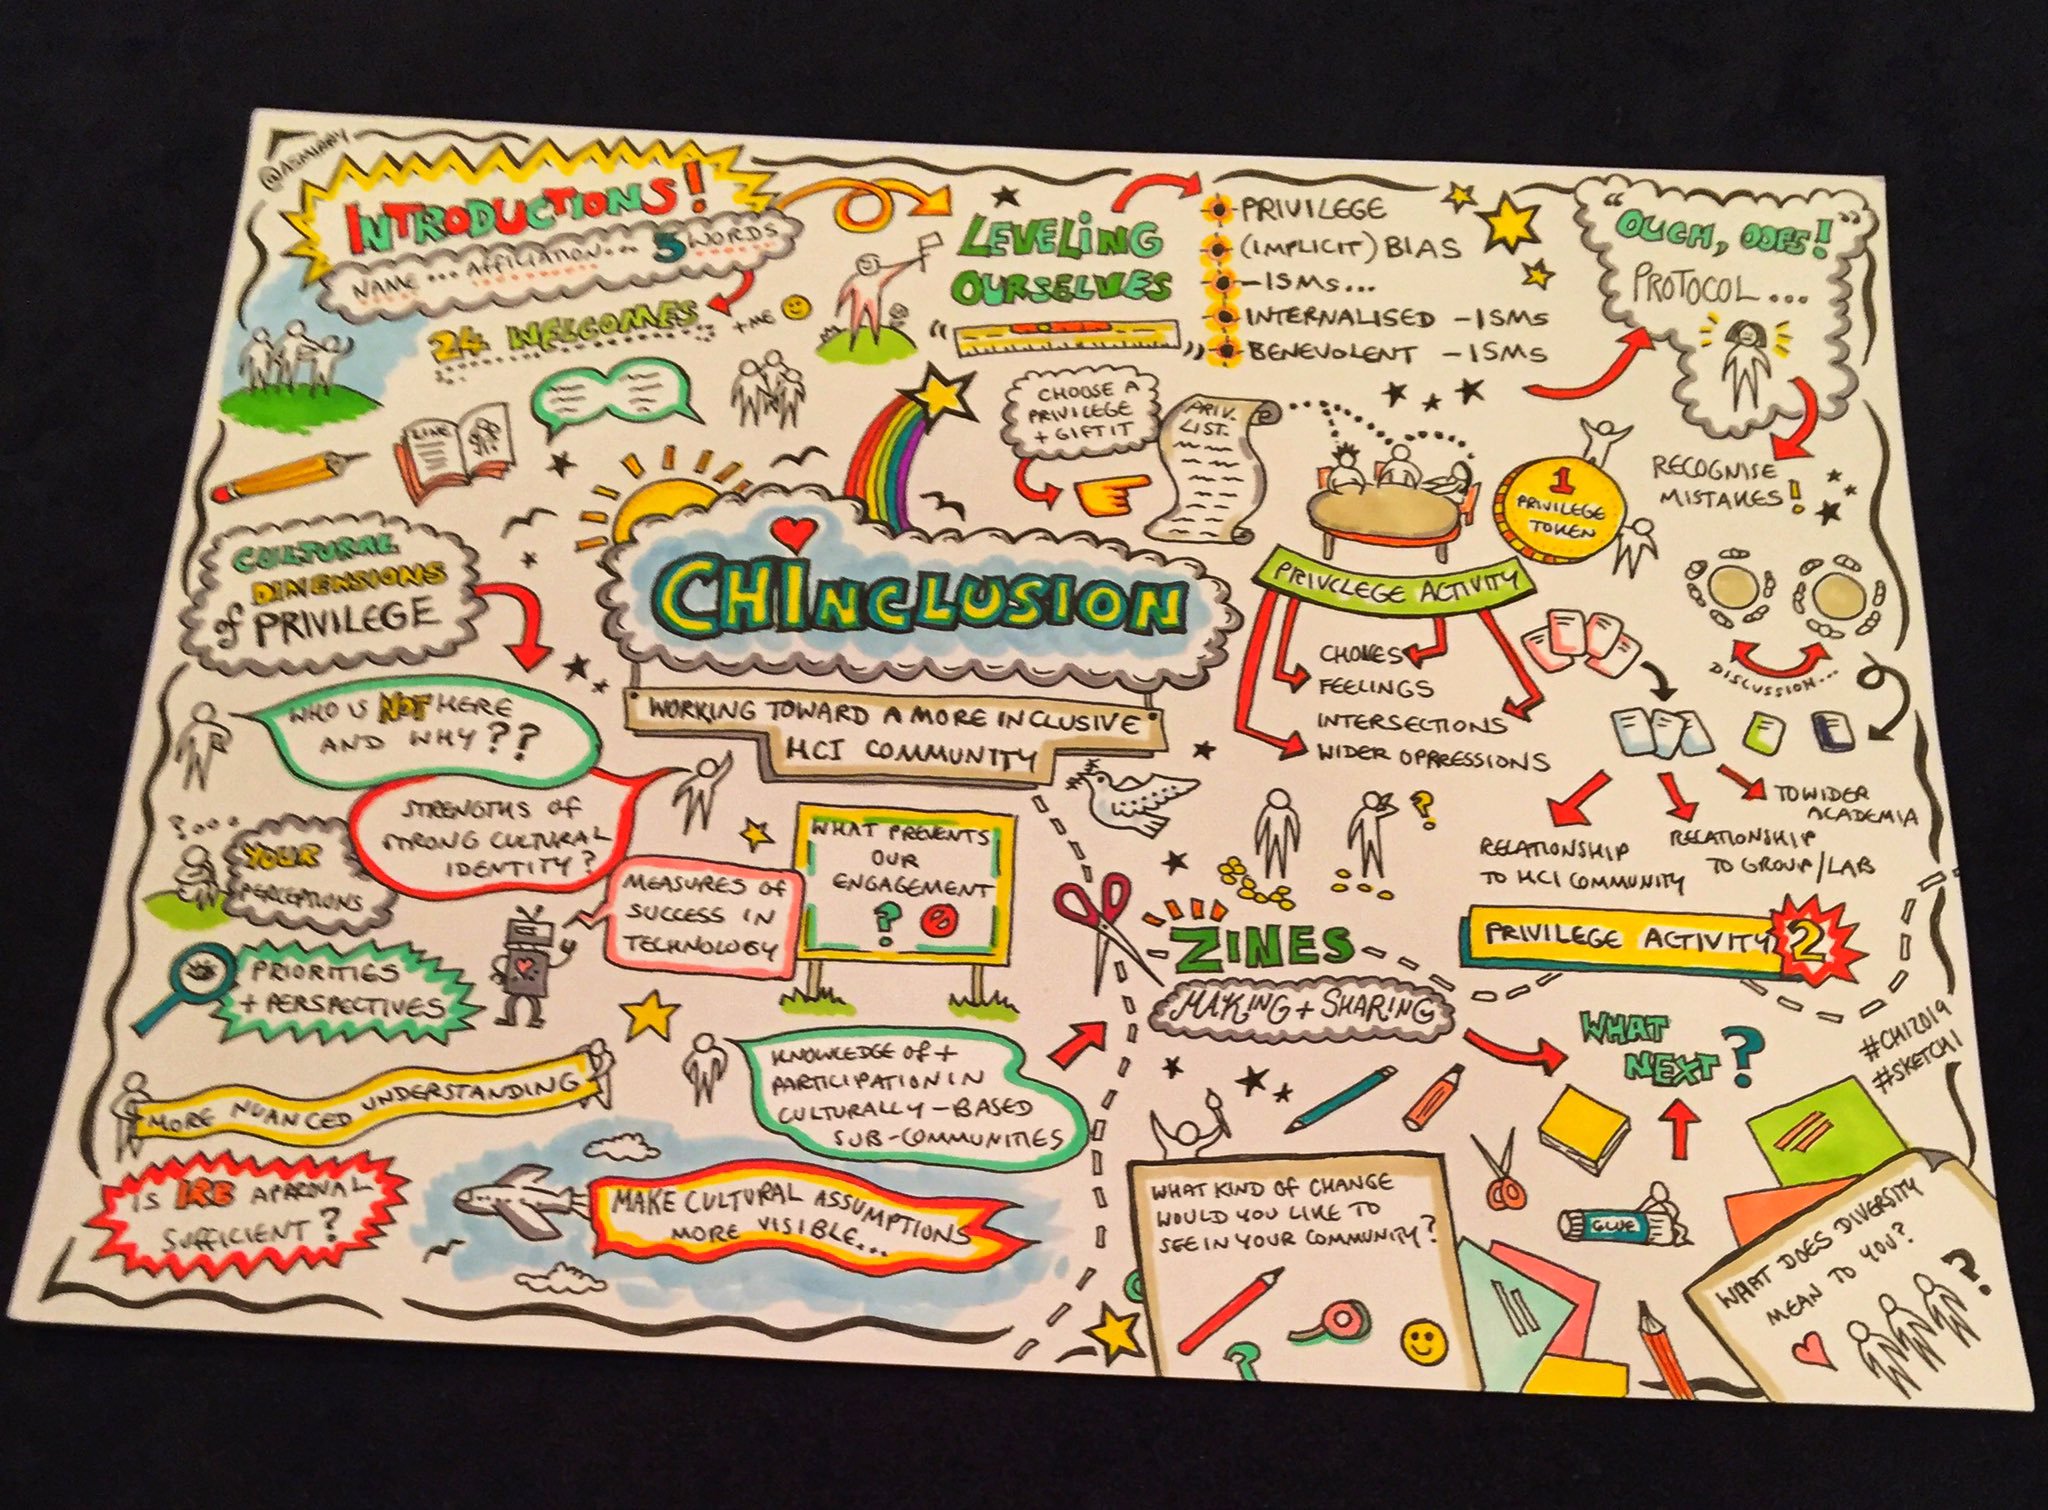 @ASMIRRY
INTRODUCTIONS!
NAME... AFFILIATION... 5 WORDS
24 WELCOMES
+ ME
LINE
LEVELING
OURSELVES
PRIVILEGE
(IMPLICIT) BIAS
-ISMS...
INTERNALISED -ISMS
BENEVOLENT -ISMS
"OUCH, OOES!"
PROTOCOL...
RECOGNISE
MISTAKES!
CHOOSE A
PRIVILEGE
+ GIFT IT
PRIV.
LIST.
1
PRIVILEGE
TOKEN
PRIVCLEGE ACTIVITY
CHOICES
FEELINGS
INTERSECTIONS
WIDER OPPRESSIONS
DISCUSSION...
TO WIDER
ACADEMIA
RELATIONSHIP
TO GROUP/LAB
RELATIONSHIP
TO HCI COMMUNITY
PRIVILEGE ACTIVITY 2
CHINCLUSION
WORKING TOWARD A MORE INCLUSIVE
HCI COMMUNITY
CULTURAL
DIMENSIONS
of PRIVILEGE
WHO IS NOT HERE
AND WHY??
STRENGTHS OF
STRONG CULTURAL
IDENTITY?
?
YOUR
PERCEPTIONS
MEASURES OF
SUCCESS IN
TECHNOLOGY
WHAT PREVENTS
OUR
ENGAGEMENT
?
PRIORITIES
+ PERSPECTIVES
MORE NUANCED UNDERSTANDING
KNOWLEDGE OF +
PARTICIPATION IN
CULTURALLY-BASED
SUB-COMMUNITIES
IS IRB APARVAL
SUFFICIENT?
MAKE CULTURAL ASSUMPTIONS
MORE VISIBLE...
?
ZINES
MAKING + SHARING
WHAT
NEXT?
#CHI2019
#SKETCHI
GLUE
WHAT KIND OF CHANGE
WOULD YOU LIKE TO
SEE IN YOUR COMMUNITY?
?
WHAT DOES DIVERSITY
MEAN TO YOU?
?